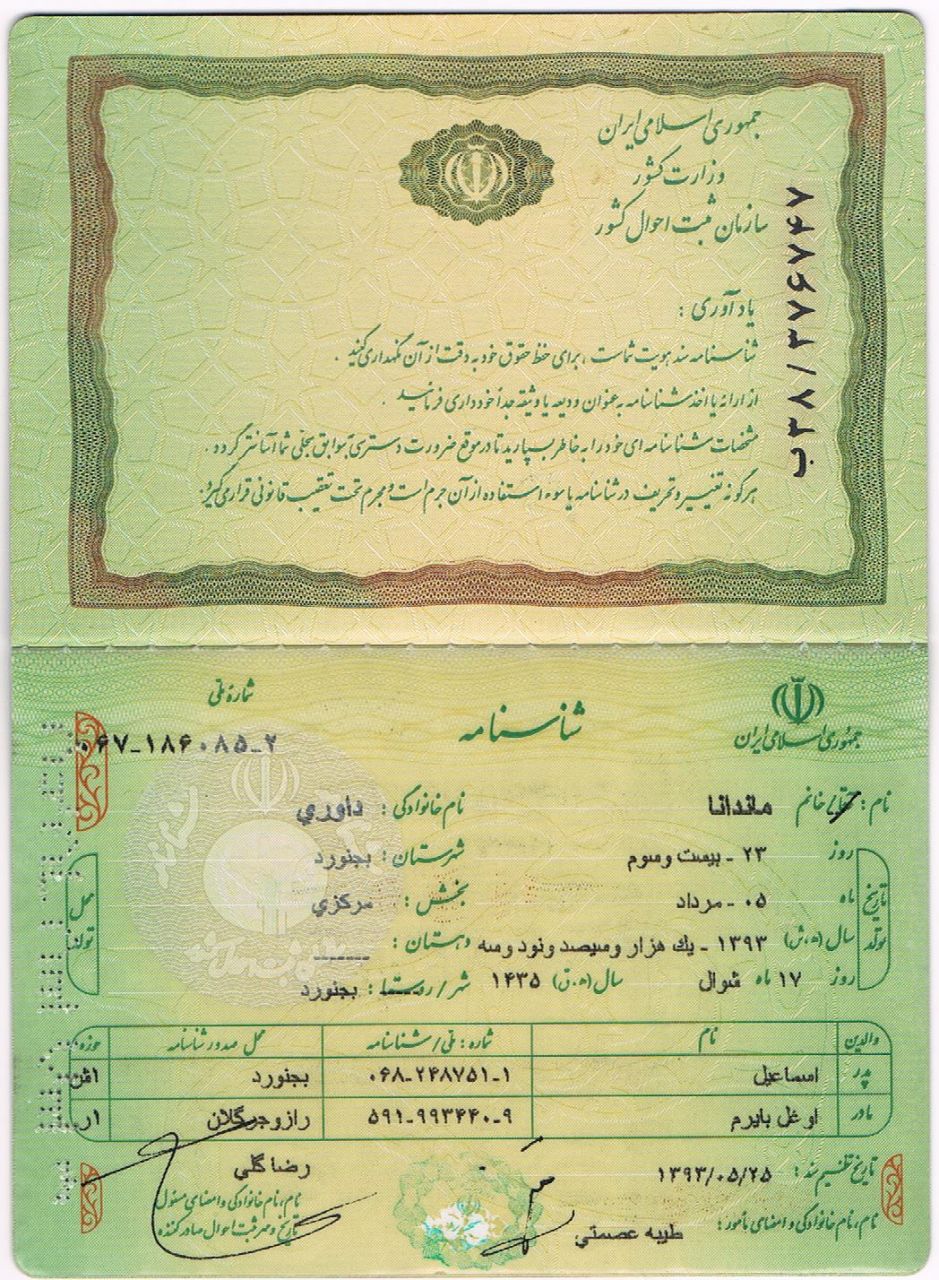 جمهوری اسلامی ایران
وزارت کشور
سازمان ثبت احوال کشور
ب۳۸/۳۷۶۷۴۷
یادآوری :
شناسنامه سند هویت شماست ، برای حفظ حقوق خود به دقت از آن نگهداری کنید .
از ارائه یا اخذ شناسنامه به عنوان ودیعه یا وثیقه جداً خودداری فرمائید .
مشخصات شناسنامه ای خود را به خاطر بسپارید تا در موقع ضرورت دسترسی به سوابق سجلی شما آسانتر گردد .
هرگونه تغییر و تحریف در شناسنامه یا سوء استفاده از آن جرم است و مجرم تحت تعقیب قانونی قرار می گیرد .
جمهوری اسلامی ایران
شناسنامه
شماره ملی
۰۶۷-۱۸۶۰۸۵-۲
نام : آقا/خانم ماندانا
نام خانوادگی : داوري
تاریخ تولد
روز ۲۳ - بيست و سوم
محل تولد
شهرستان : بجنورد
ماه ۰۵ - مرداد
بخش : مركزي
سال (ه.ش) ۱۳۹۳ - يك هزار و سيصد و نود و سه
دهستان : ------
روز ۱۷ ماه شوال سال (ه.ق) ۱۴۳۵
شهر/روستا : بجنورد
والدین نام شماره : ملی/شناسنامه محل صدور شناسنامه حوزه
پدر اسماعيل ۰۶۸-۲۴۸۷۵۱-۱ بجنورد
مادر اوغل بايرم ۵۹۱-۹۹۳۴۴۰-۹ رازوجرگلان
تاریخ تنظیم سند : ۱۳۹۳/۰۵/۲۵
نام ، نام خانوادگی و امضای مأمور : طيبه عصمتي
رضا گلي
نام ، نام خانوادگی و امضای مسئول
تاریخ و مهر ثبت احوال صادرکننده